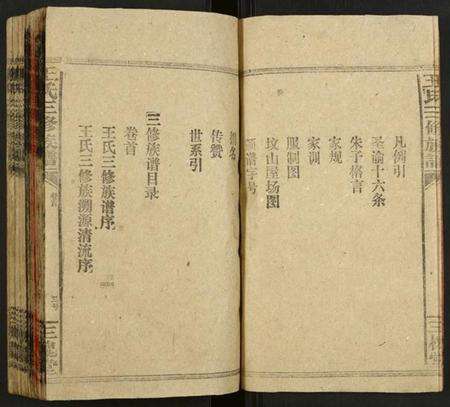 王氏三修族譜
凡例引
圣諭十六条
朱子格言
家规
家训
服制图
坟山屋场图
领谱字号
传赞
世系引
三修族谱目录
卷首
王氏三修族谱序
王氏三修族溯源清流序
王氏三修族譜
三槐堂
三槐堂